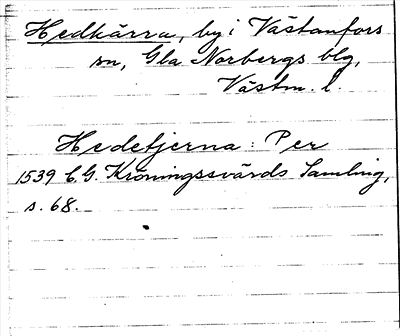 Hedkärra, by i Västanfors
sn, Gla Norbergs blg,
Västm. l.
Hedetjerna: Per
1539 C.G. Kröningssvärds Samling,
s. 68.